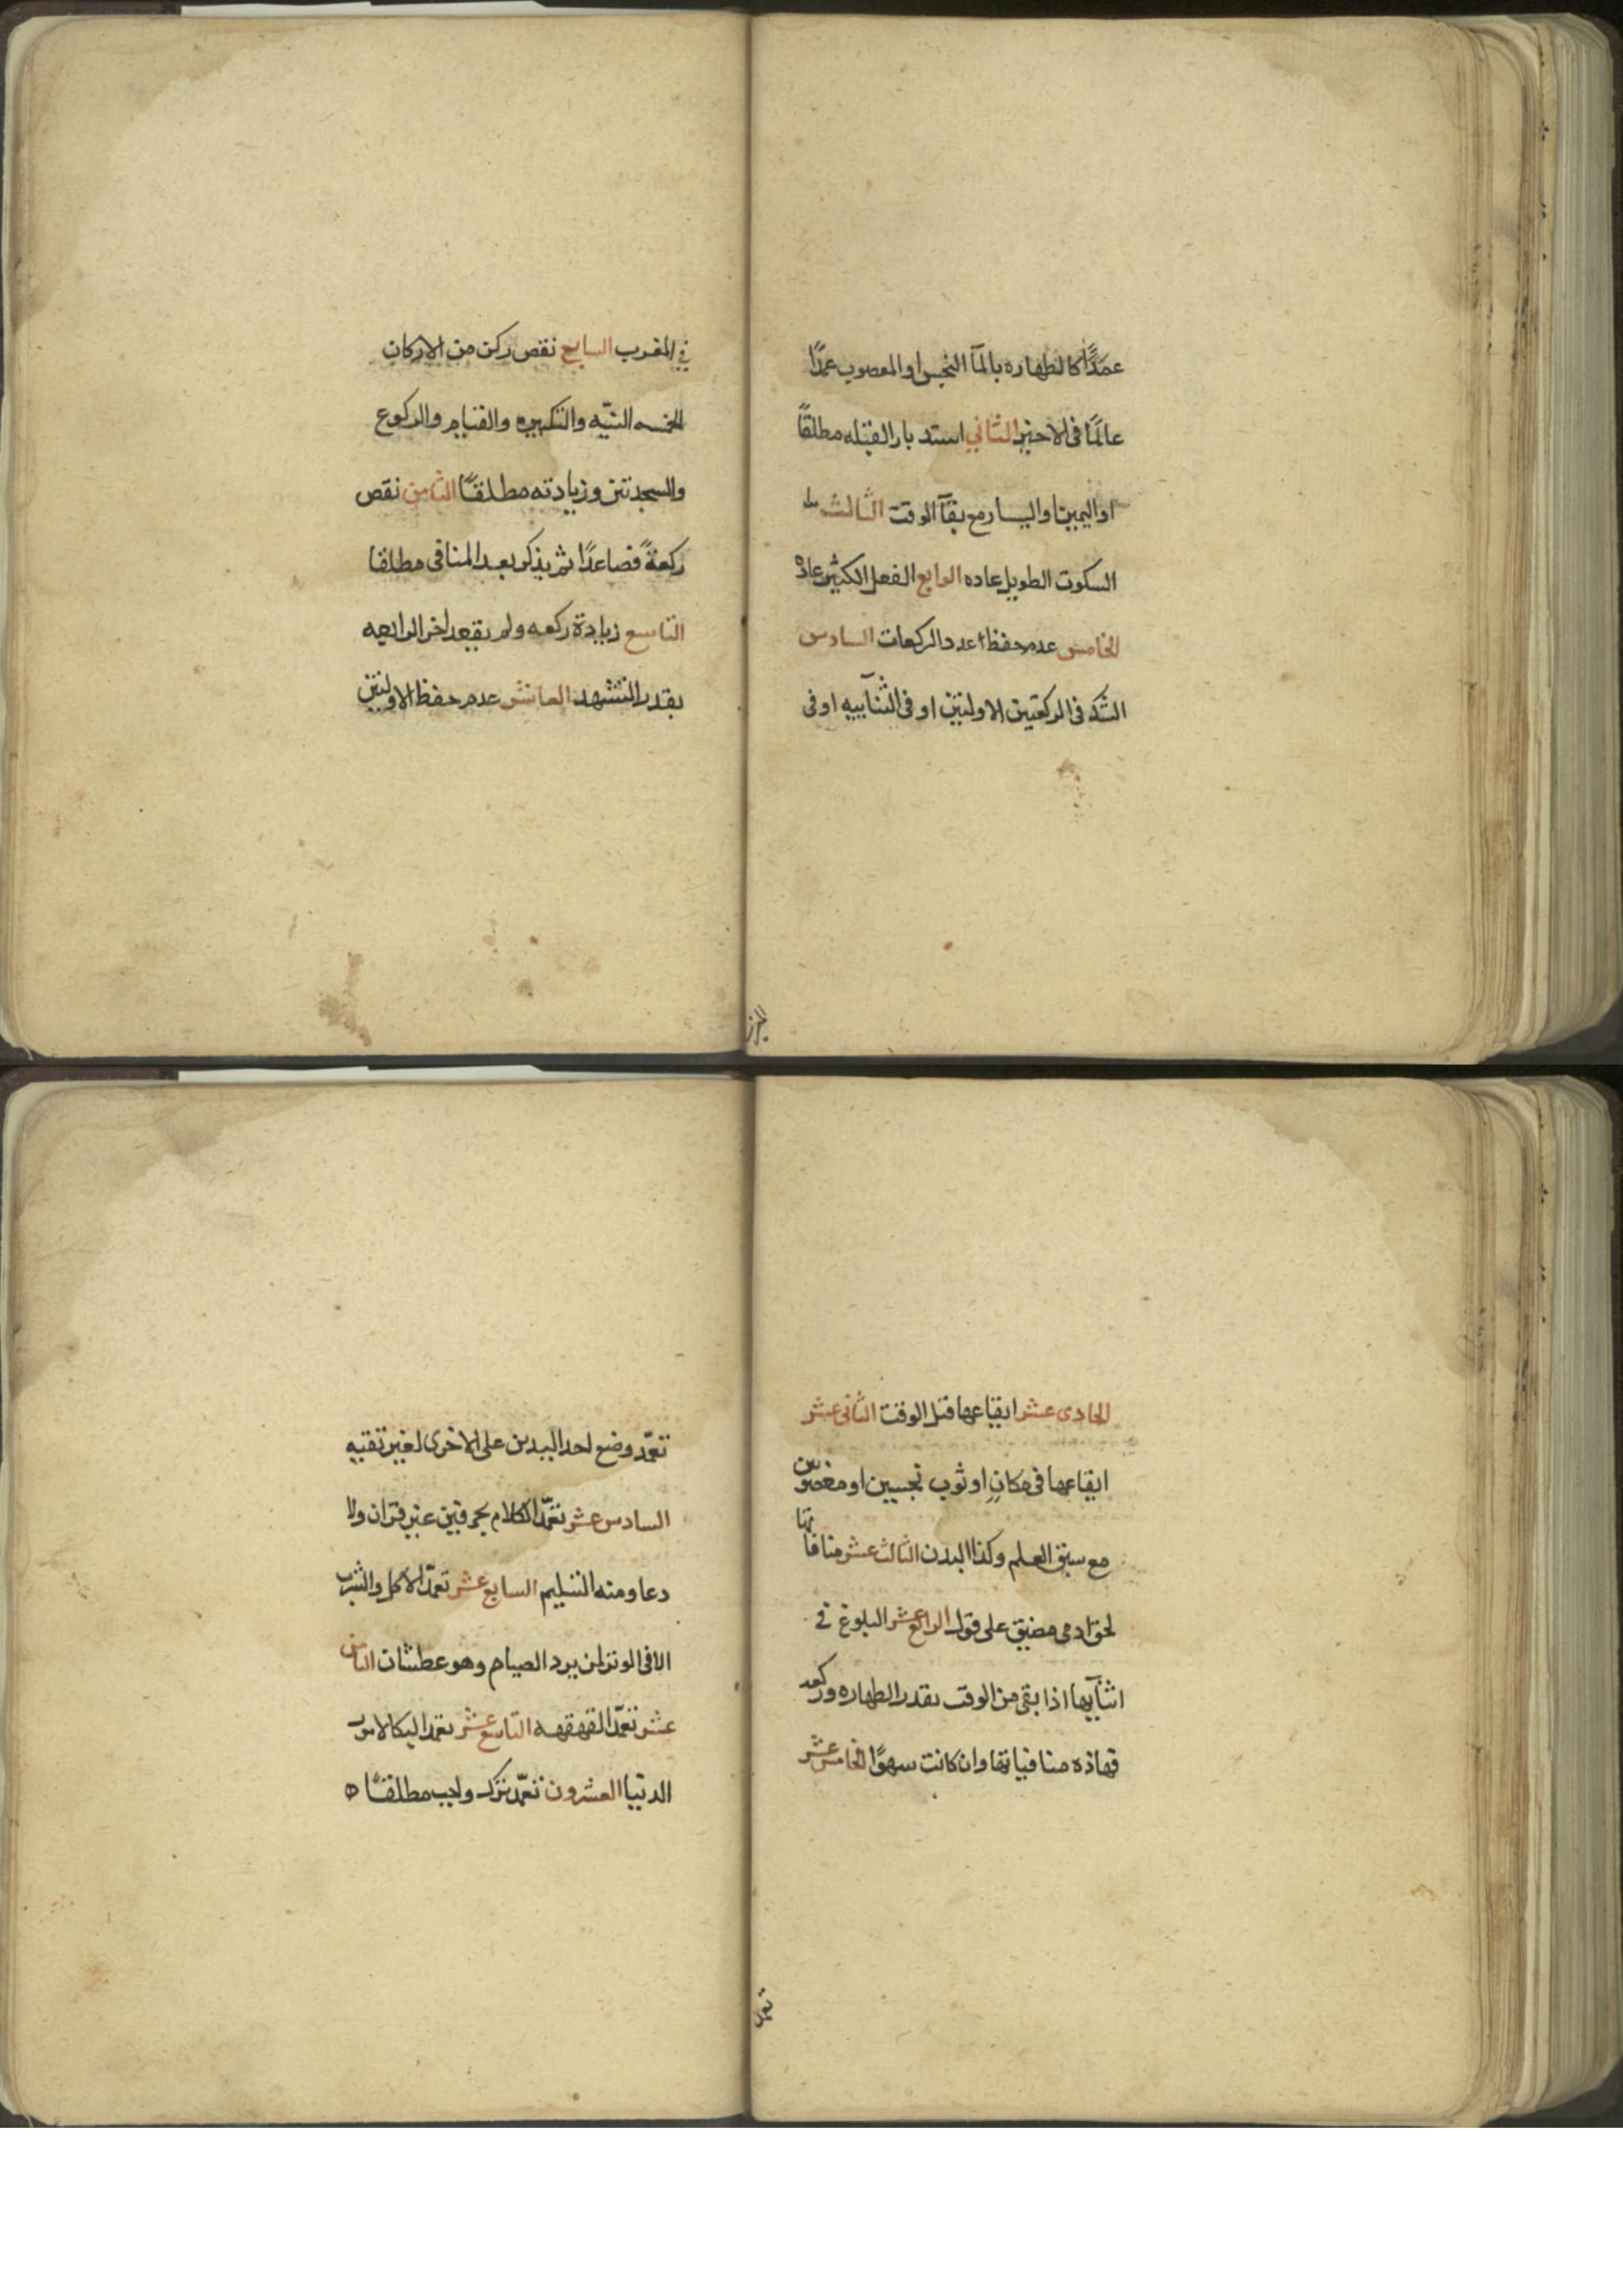 عمَدًا كالطهاره بالمآ النجس او المعصوب عمدًا
عالمًا فى الاخير الثاني استدبار القبله مطلقًا
او اليمين او اليسار مع بقآ الوقت الثالث
السكوت الطويل عاده الرابع الفعل الكثير عادة
الخامس عدم حفظ اعدد الركعات السادس
الشك فى الركعتين الاولتين او فى الثنآييه او فى
في المغرب السابع نقص ركن من الاركان
الخمسه النيّه والتكبيره والقيام والركوع
والسجدتين وزيادته مطلقًا الثامن نقص
ركعةً فصاعدًا ثم يذكر بعد المنافى مطلقا
التاسع زيادة ركعه ولم يقعد اخر الرابعه
بقدر التشهد العاشر عدم حفظ الاولتين
الحادى عشر ايقاعها قبل الوقت الثانى عشر
ايقاعها فى مكانٍ او ثوب نجسين او مغصوبين
مع سبق العلم وكذا البدن الثالث عشر منافاتها
لحق ادمى مضيق على قول الرابع عشر البلوغ في
اثنآيها اذا بقى من الوقت بقدر الطهاره وركعه
فهاذه منافياتها وان كانت سهوًا الخامس عشر
تعمد
تعمّد وضع احد اليدين على الاخرى لغير تقيه
السادس عشر تعمّد الكلام بحرفين غير قران ولا
دعا ومنه التسليم السابع عشر تعمّد الاكل والشرب
الا فى الوتر لمن يرد الصيام وهو عطشان الثامن
عشر تعمّد القهقهه التاسع عشر تعمد البكا لامور
الدنيا العشرون تعمّد ترك واجب مطلقًا ه